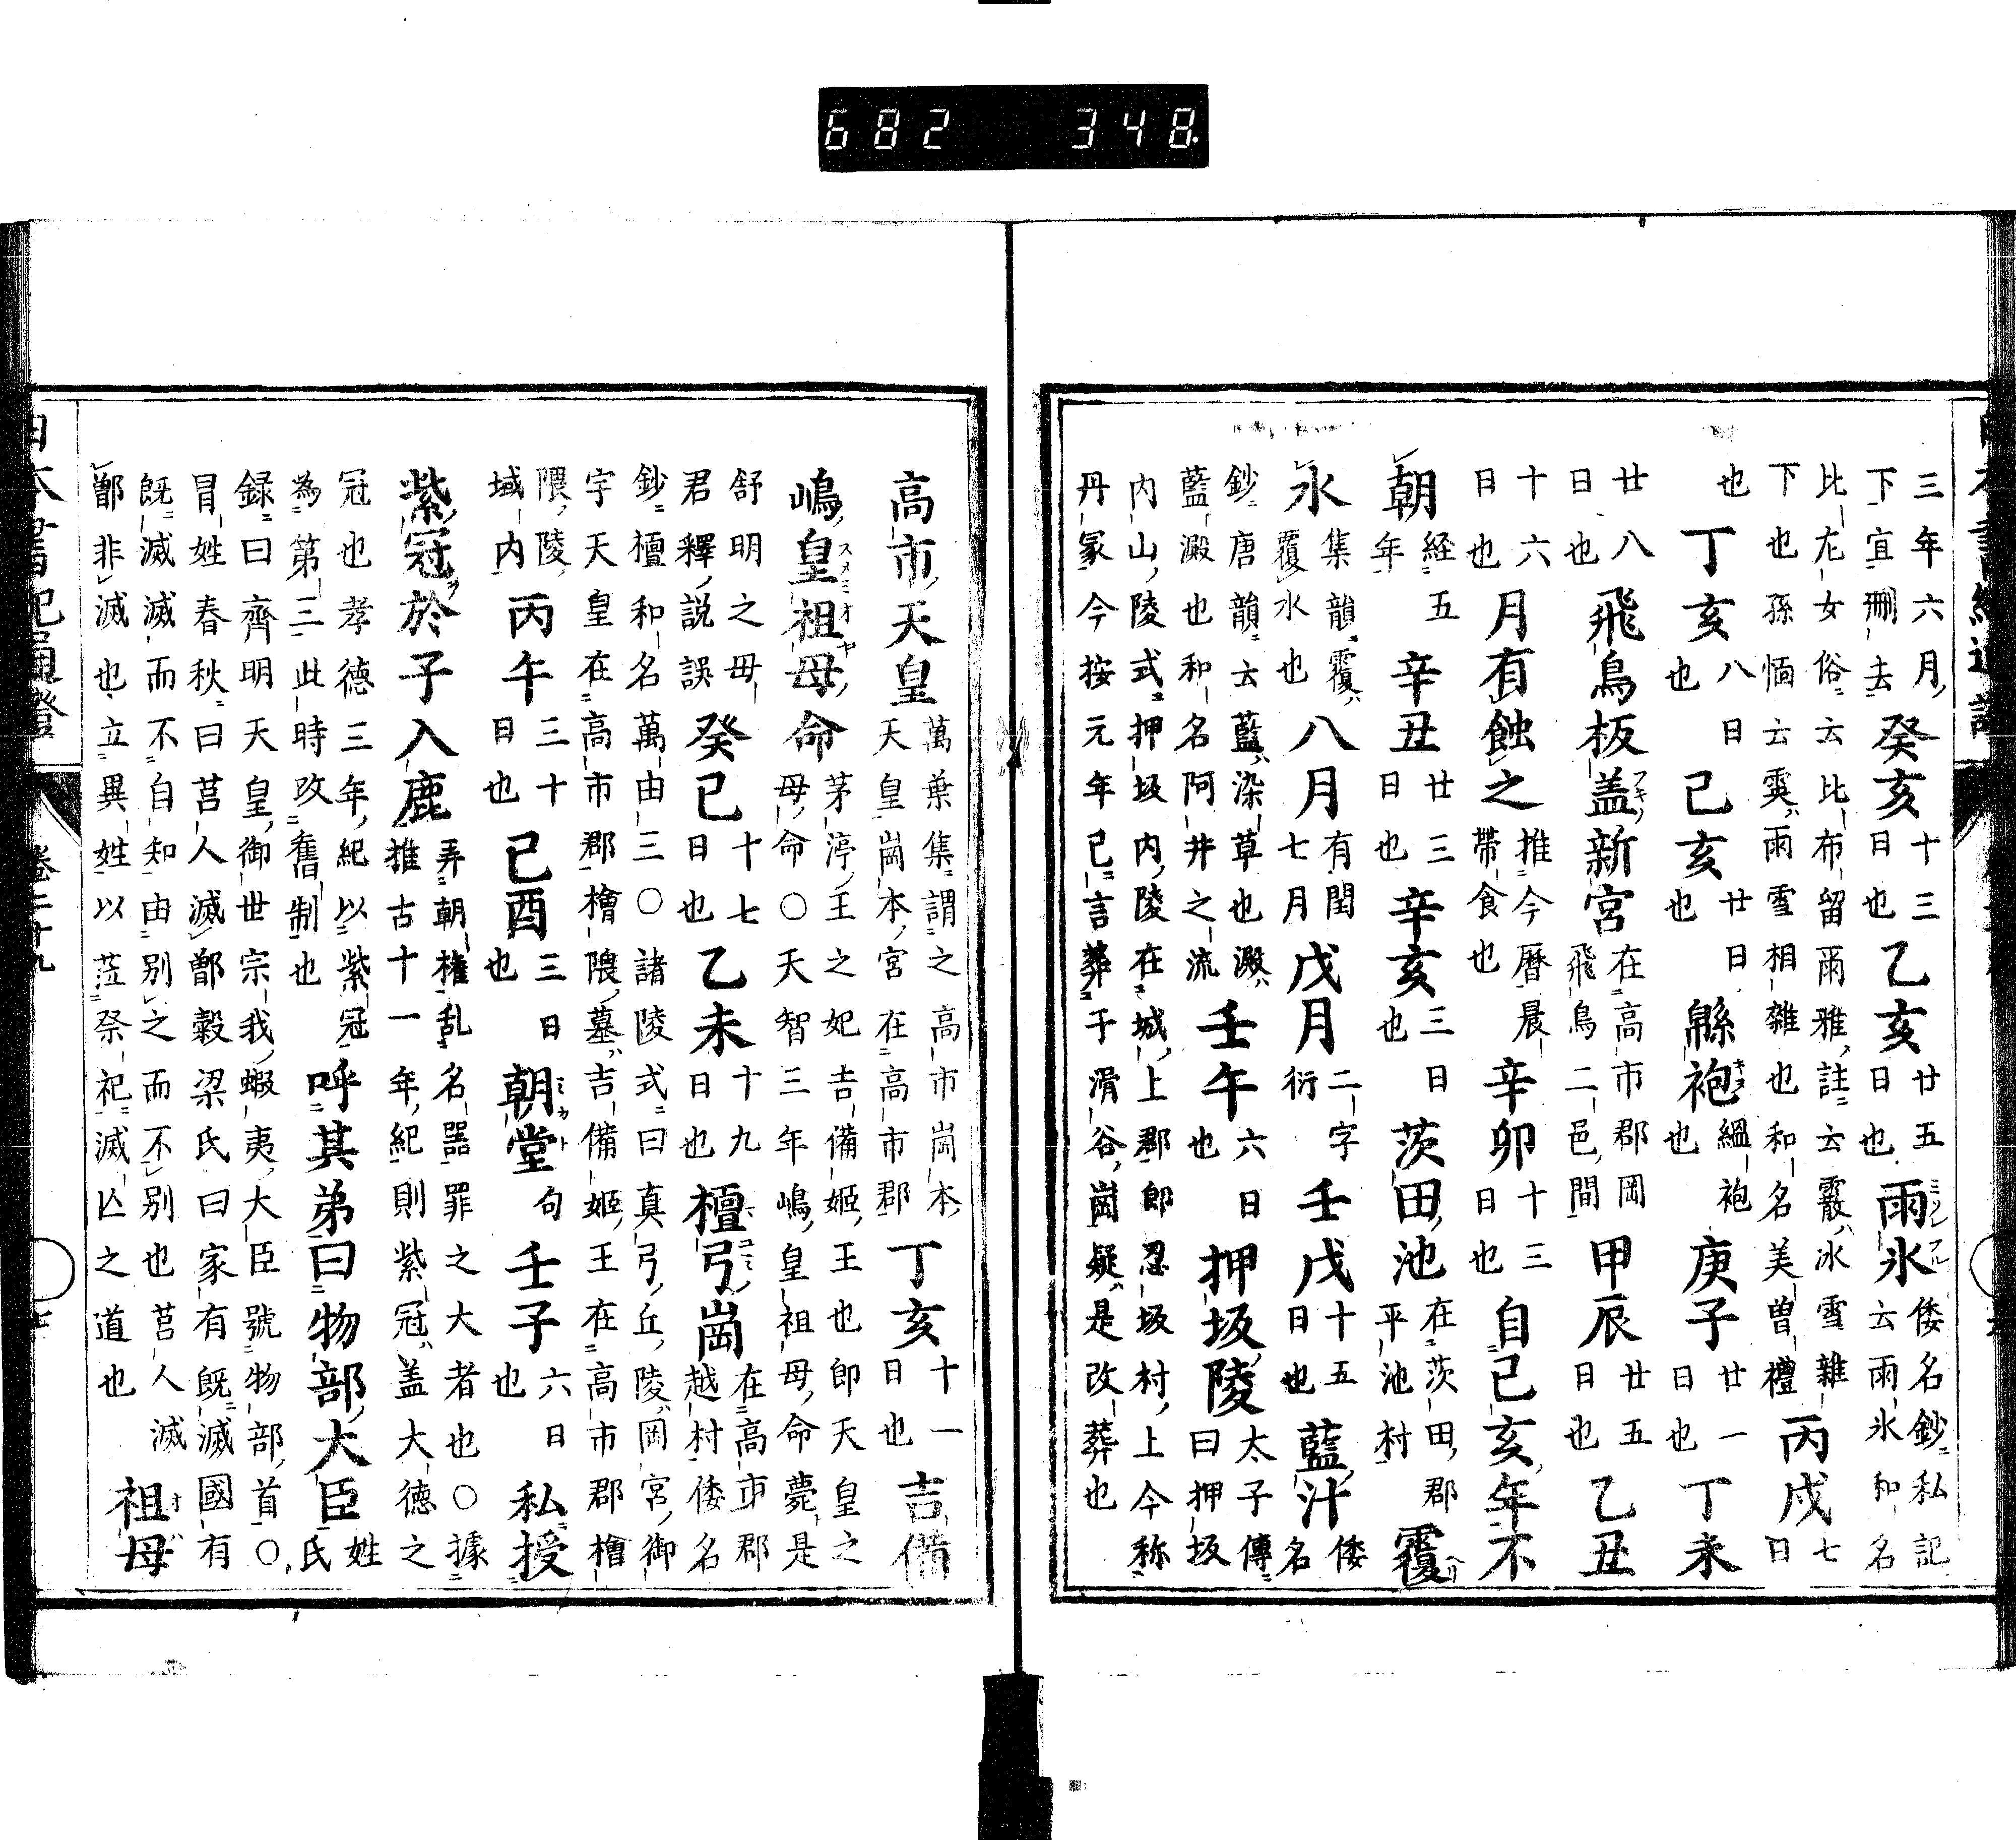 三年六月下宜刪去癸亥十三日也乙亥廿五日也雨氷倭名鈔私記云雨氷和名
比左女俗云比布留雨雅註云霰氷雪雜下也孫愐云霙雨雪相雜也和名美曽禮丙戌七日
也丁亥八日也己亥廿日也緜袍縕袍也庚子廿一日也丁未
廿八日也飛鳥板盖新宮在高市郡岡飛鳥二邑間甲辰廿五日也乙丑
十六日也月有蝕之推今暦晨帶食也辛卯十三日也自己亥年不
朝経五年辛丑廿三日也辛亥三日也茨田池在茨田郡平池村覆
氷集韻覆覆氷也八月有閏七月戊月二字衍壬戌十五日也藍汁倭名
鈔唐韻云藍染草也澱藍澱也和名阿井之流壬午六日也押坂陵太子傳曰押坂
内山陵式押坂内陵在城上郡即忍坂村上今称丹冡今按元年已言葬于滑谷崗疑是改葬也
高市天皇萬葉集謂之高市崗本天皇崗本宮在高市郡丁亥十一日也吉備
嶋皇祖母命茅渟王之妃吉備姬王也即天皇之母命○天智三年嶋皇祖母命薨是
舒明之母君釋説誤癸巳十七日也乙未十九日也檀弓崗在高市郡越村倭名
鈔檀和名萬由三○諸陵式曰真弓丘陵岡宮御宇天皇在高市郡檜隈墓吉備姬王在高市郡檜
隈陵域内丙午三十日也己酉三日也朝堂句壬子六日也私授
紫冠於子入鹿弄朝権乱名器罪之大者也○據推古十一年紀則紫冠盖大德之
冠也孝德三年紀以紫冠為第三此時改舊制也呼其弟曰物部大臣姓氏
録曰齊明天皇御世宗我蝦夷大臣號物部首○冒姓春秋曰莒人滅鄫穀梁氏曰家有既滅國有
既滅滅而不自知由别之而不别也莒人滅鄫非滅也立異姓以莅祭祀滅亡之道也祖母
日本書紀通證
卷二十九
七
682 348